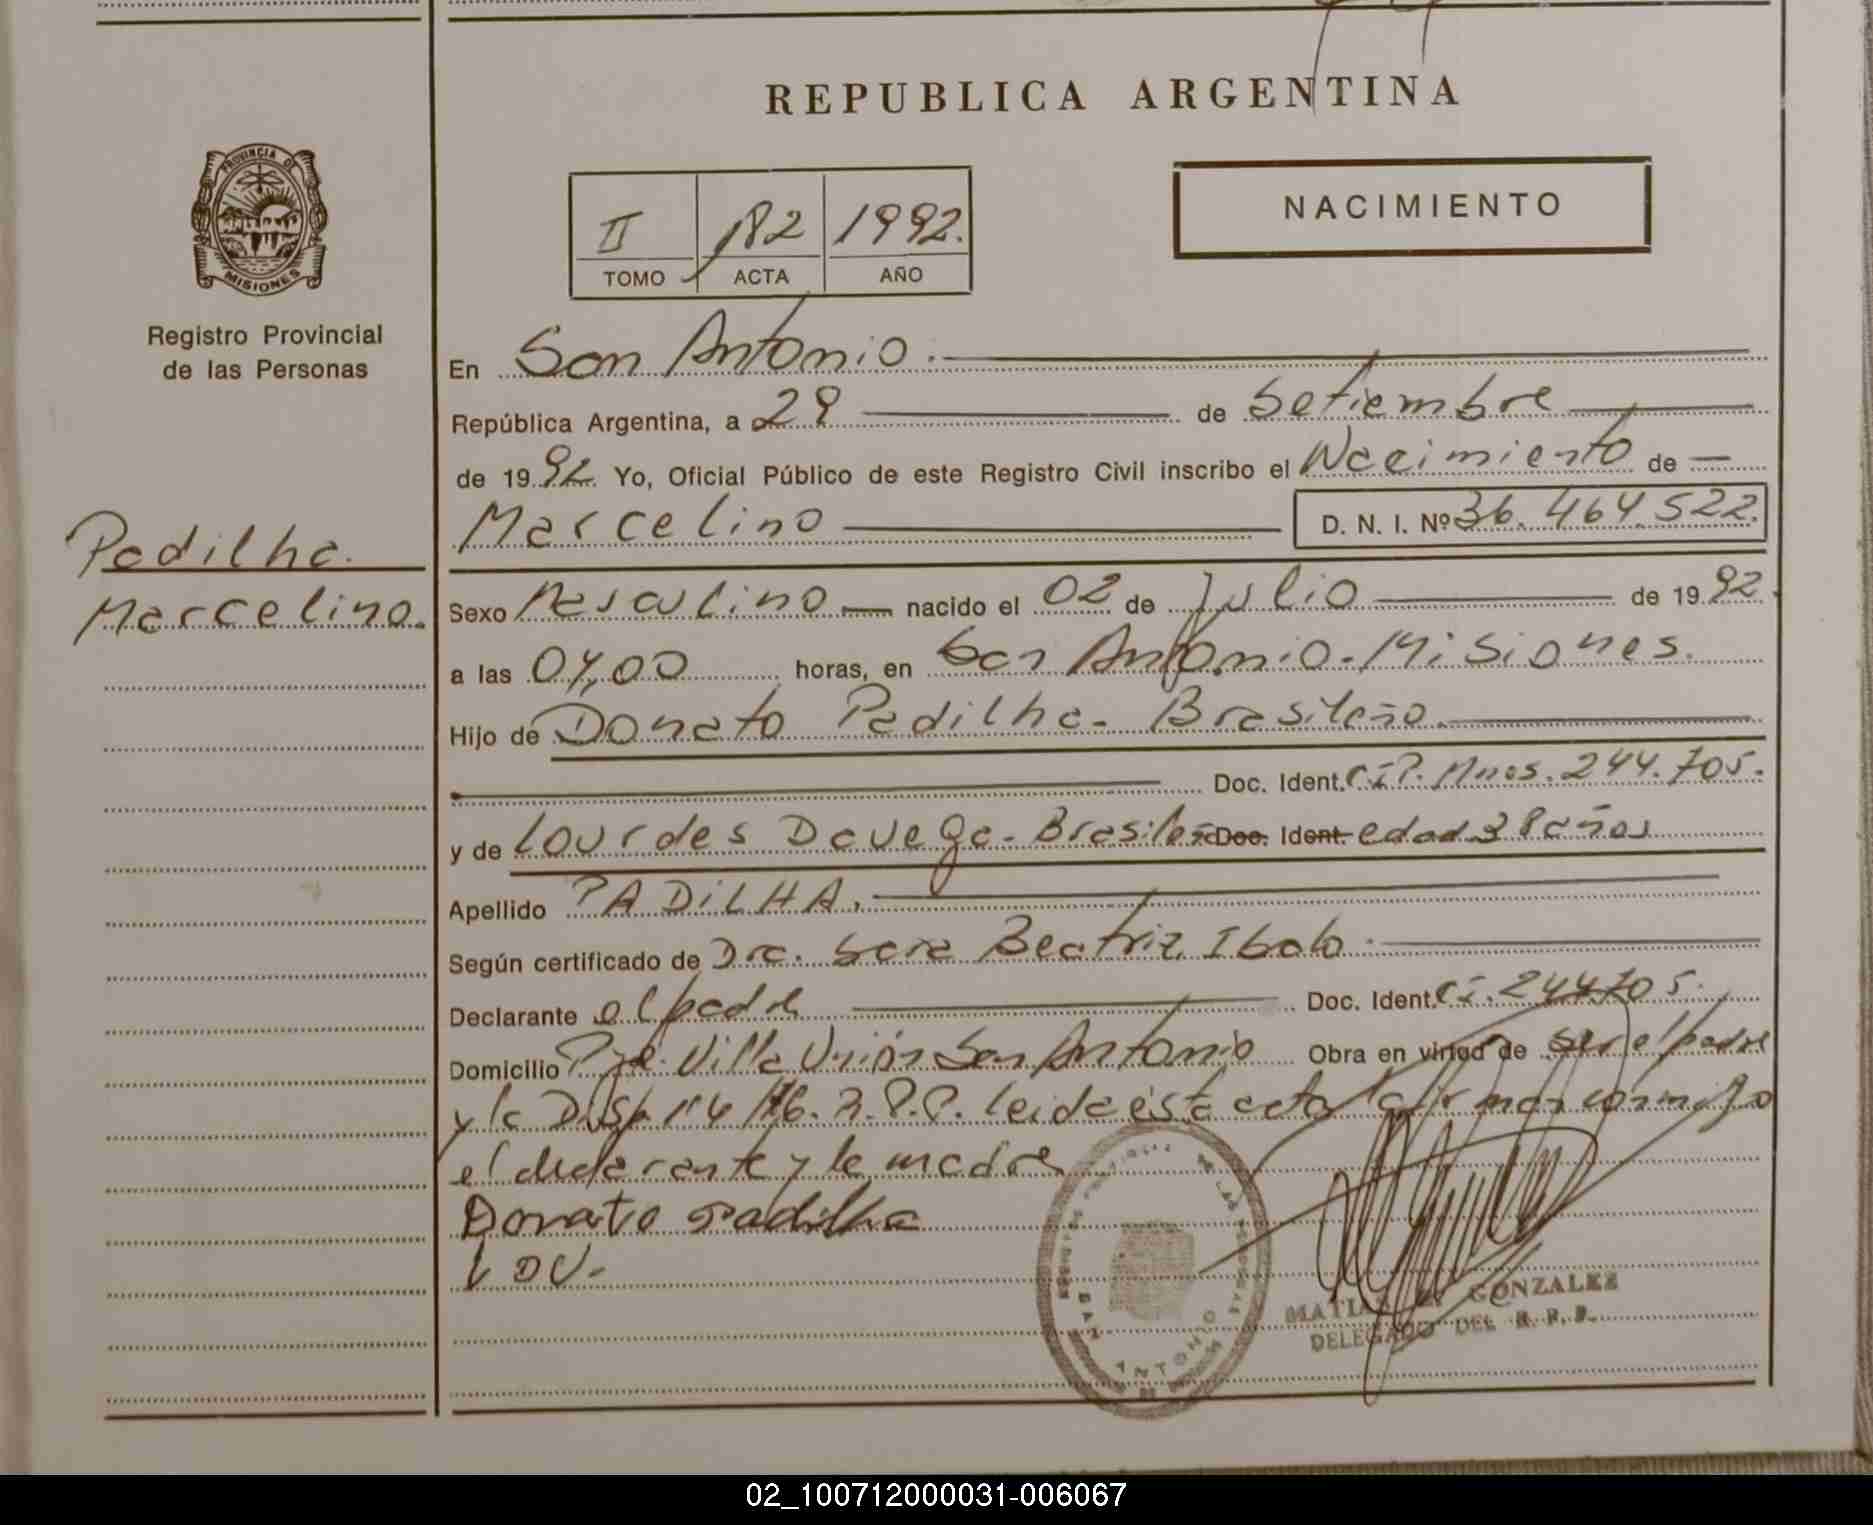 REPUBLICA ARGENTINA
PROVINCIA DE
MISIONES
Registro Provincial
de las Personas
II 182 1992.
TOMO ACTA AÑO
NACIMIENTO
En San Antonio.
República Argentina, a 29 de Setiembre
de 1992 Yo, Oficial Público de este Registro Civil inscribo el Nacimiento de
Marcelino D. N. I. Nº 36.464.522.
Padilha.
Marcelino.
Sexo Masculino nacido el 02 de Julio de 1992
a las 04,00 horas, en San Antonio-Misiones.
Hijo de Donato Padilha- Brasileño.
Doc. Ident. C.I.P. Mnes. 244.705.
y de Lourdes Davega- Brasileña Doc. Ident. edad 38 años
Apellido PADILHA.
Según certificado de Dra. Sara Beatriz
Declarante el padre Doc. Ident. C.I. 244.705.
Domicilio Pje. Villa Unión San Antonio Obra en virtud de ser el padre
y la Disp. 114/76. R.P.P. leida esta acta la firman conmigo
el declarante y la madre
Donato Padilha
LOU-
SAN ANTONIO
MATIAS GONZALEZ
DELEGADO DEL R. P. P.
02_100712000031-006067